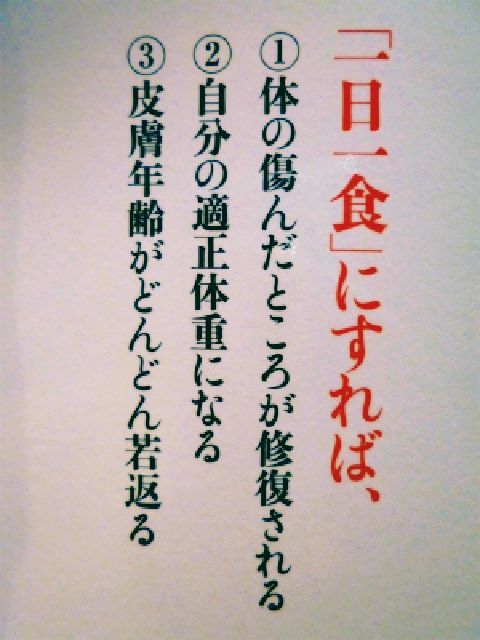 「一日一食」にすれば、
①体の傷んだところが修復される
②自分の適正体重になる
③皮膚年齢がどんどん若返る